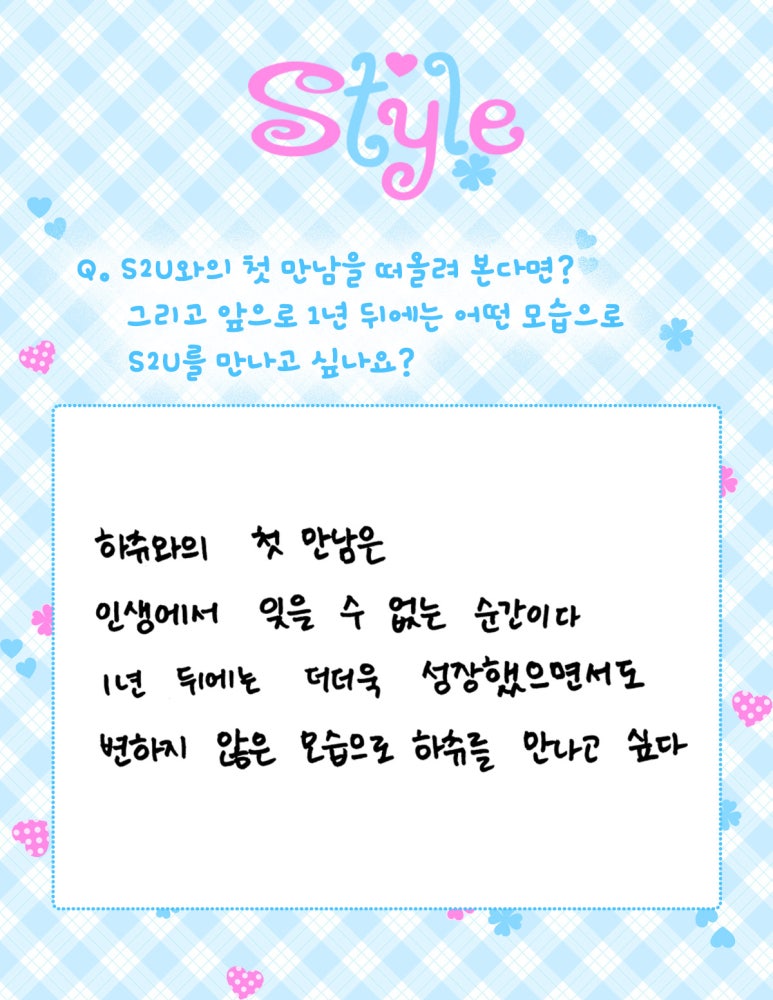 Style
Q. S2U와의 첫 만남을 떠올려 본다면?
그리고 앞으로 1년 뒤에는 어떤 모습으로
S2U를 만나고 싶나요?
하츄와의 첫 만남은
인생에서 잊을 수 없는 순간이다
1년 뒤에는 더더욱 성장했으면서도
변하지 않은 모습으로 하츄를 만나고 싶다